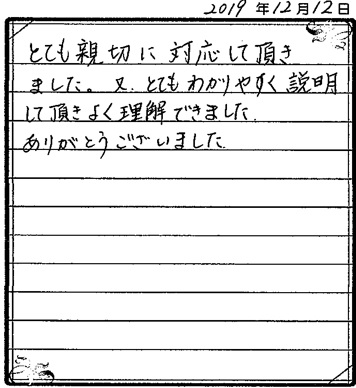 2019年12月12日
とても親切に対応して頂き
ました。又、とてもわかりやすく説明
して頂きよく理解できました.
ありがとうございました.